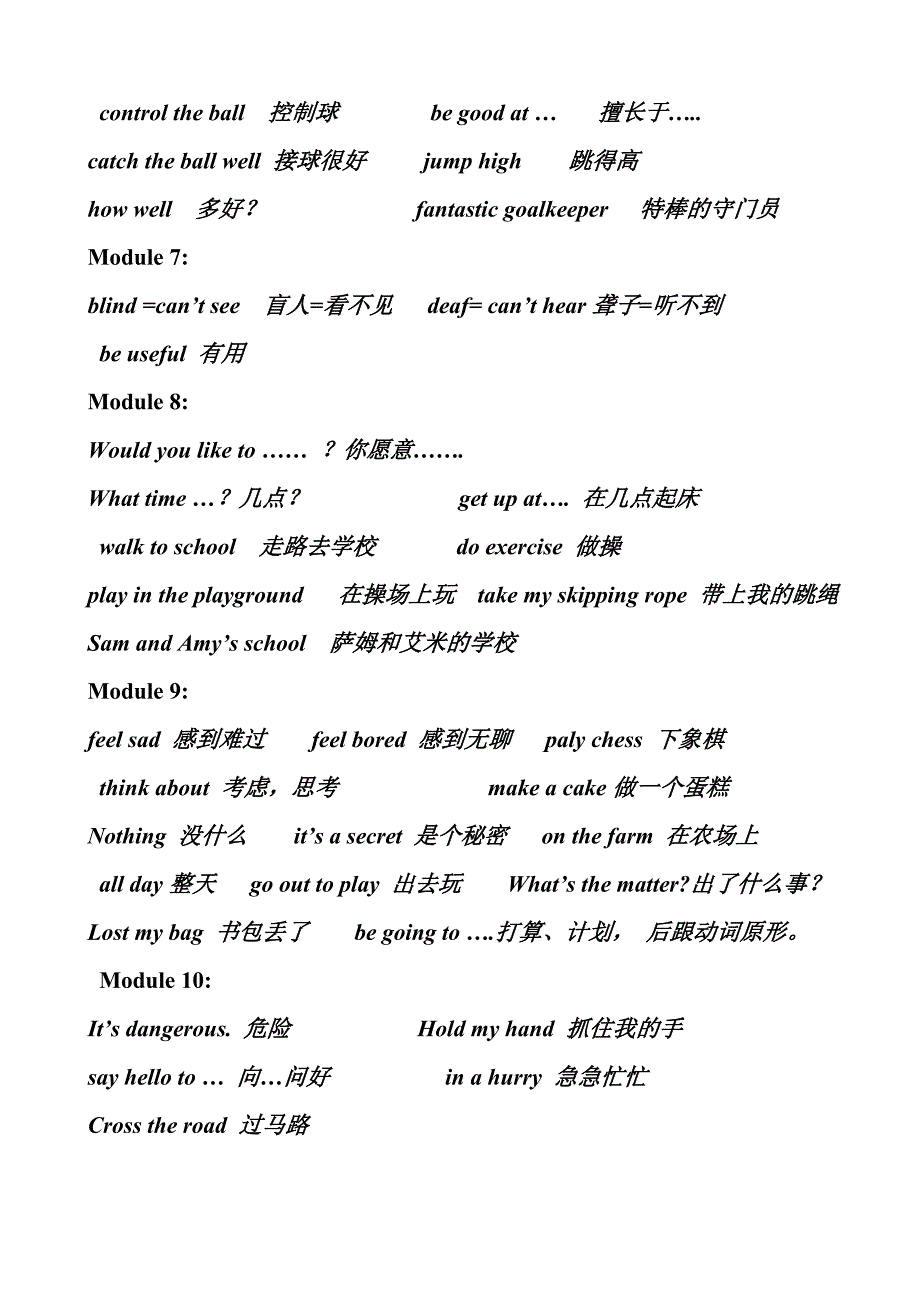 control the ball 控制球 be good at … 擅长于…..
catch the ball well 接球很好 jump high 跳得高
how well 多好？ fantastic goalkeeper 特棒的守门员
Module 7:
blind =can’t see 盲人=看不见 deaf= can’t hear 聋子=听不到
be useful 有用
Module 8:
Would you like to …… ？你愿意…….
What time …？几点？ get up at…. 在几点起床
walk to school 走路去学校 do exercise 做操
play in the playground 在操场上玩 take my skipping rope 带上我的跳绳
Sam and Amy’s school 萨姆和艾米的学校
Module 9:
feel sad 感到难过 feel bored 感到无聊 paly chess 下象棋
think about 考虑，思考 make a cake 做一个蛋糕
Nothing 没什么 it’s a secret 是个秘密 on the farm 在农场上
all day 整天 go out to play 出去玩 What’s the matter?出了什么事？
Lost my bag 书包丢了 be going to ….打算、计划， 后跟动词原形。
Module 10:
It’s dangerous. 危险 Hold my hand 抓住我的手
say hello to … 向…问好 in a hurry 急急忙忙
Cross the road 过马路